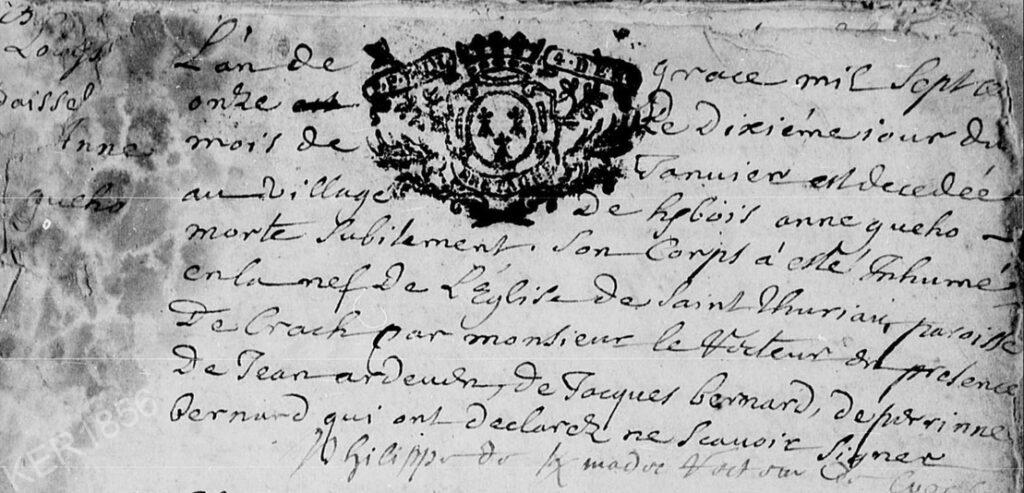 Anne
gueho
L'an de grace mil Sept
onze est Le Dixiéme jour du
mois de Janvier est decedée
au village De kbois anne gueho
morte subitement. son Corps a esté Inhumé
en la nef De L'Eglise de Saint Thuriau, paroisse
De Crach par monsieur le Recteur en presence
De Jean ardeven, de Jacques bernard, de perrinne
bernard qui ont declarez ne scavoir signer
Philippe de Kmadec Recteur de
BRETAGNE
KER 1856